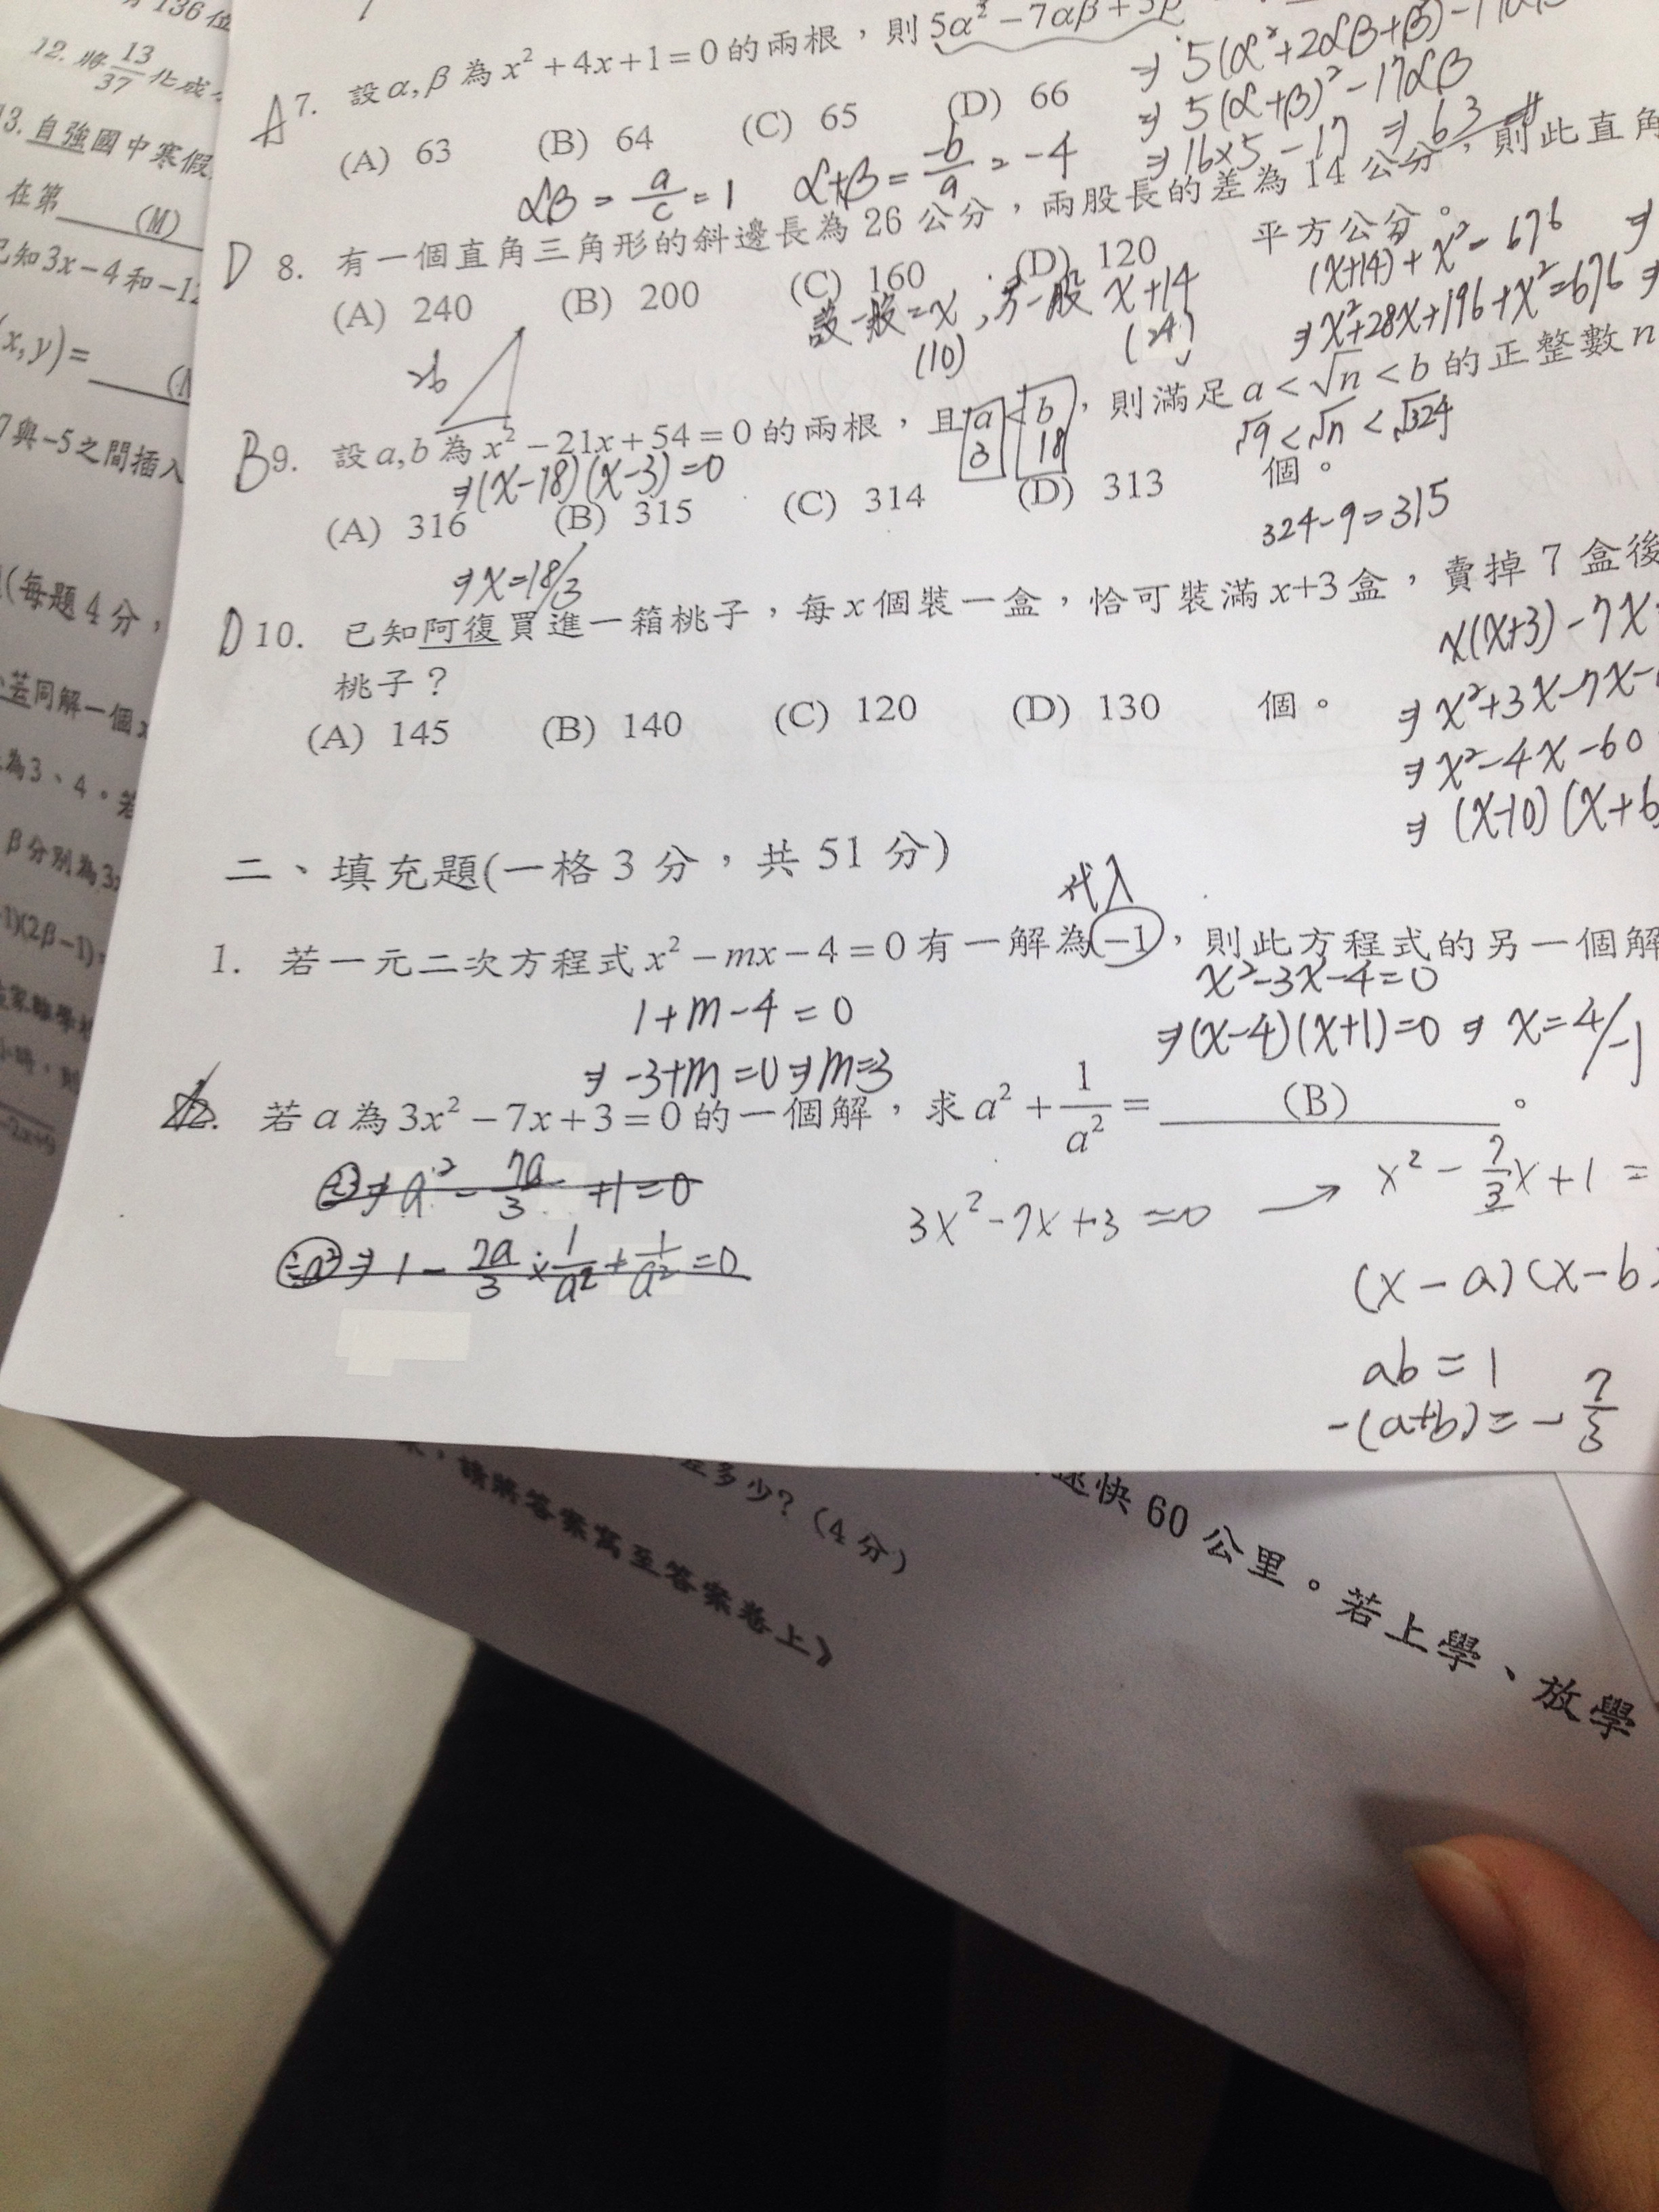 136位
12. 將13/37化成
13. 自強國中寒假
在第____(M)
已知3x-4和-12
(x,y)=
7與-5之間插入
(每題4分，
同解一個x
為3、4。若
β分別為3
-1)(2β-1)，
A 7. 設α,β為x²+4x+1=0的兩根，則5α²-7αβ+5β
(A) 63 (B) 64 (C) 65 (D) 66
αβ = a/c = 1 α+β = -b/a = -4
⇒ 5(α²+2αβ+β)-17αβ
⇒ 5(α+β)²-17αβ
⇒ 16×5-17 ⇒ 63
D 8. 有一個直角三角形的斜邊長為26公分，兩股長的差為14公分，則此直角
(A) 240 (B) 200 (C) 160 (D) 120 平方公分。
設一股=x，另一股 x+14
(10) (24)
26
(x+14)+x²=676 ⇒
⇒x²+28x+196+x²=676 ⇒
B 9. 設a,b為x²-21x+54=0的兩根，且a<b，則滿足a<√n<b的正整數n
3 18
√9<√n<√324
⇒(x-18)(x-3)=0
(A) 316 (B) 315 (C) 314 (D) 313 個。
324-9=315
⇒x=18/3
D 10. 已知阿復買進一箱桃子，每x個裝一盒，恰可裝滿x+3盒，賣掉7盒後
桃子？
(A) 145 (B) 140 (C) 120 (D) 130 個。
x(x+3)-7x
⇒x²+3x-7x-
⇒x²-4x-60
⇒(x-10)(x+6
二、填充題(一格3分，共51分)
代入
1. 若一元二次方程式x²-mx-4=0有一解為-1，則此方程式的另一個解
1+m-4=0
⇒-3+m=0⇒m=3
x²-3x-4=0
⇒(x-4)(x+1)=0 ⇒ x=4/-1
2. 若a為3x²-7x+3=0的一個解，求a²+1/a²=____(B)____。
÷3⇒a²-7a/3+1=0
÷a²⇒1-7a/3×1/a²+1/a²=0
3x²-7x+3=0 → x²-7/3x+1=
(x-a)(x-b)
ab=1
-(a+b)=-7/3
差多少？(4分)
，請將答案寫至答案卷上》
速快60公里。若上學、放學